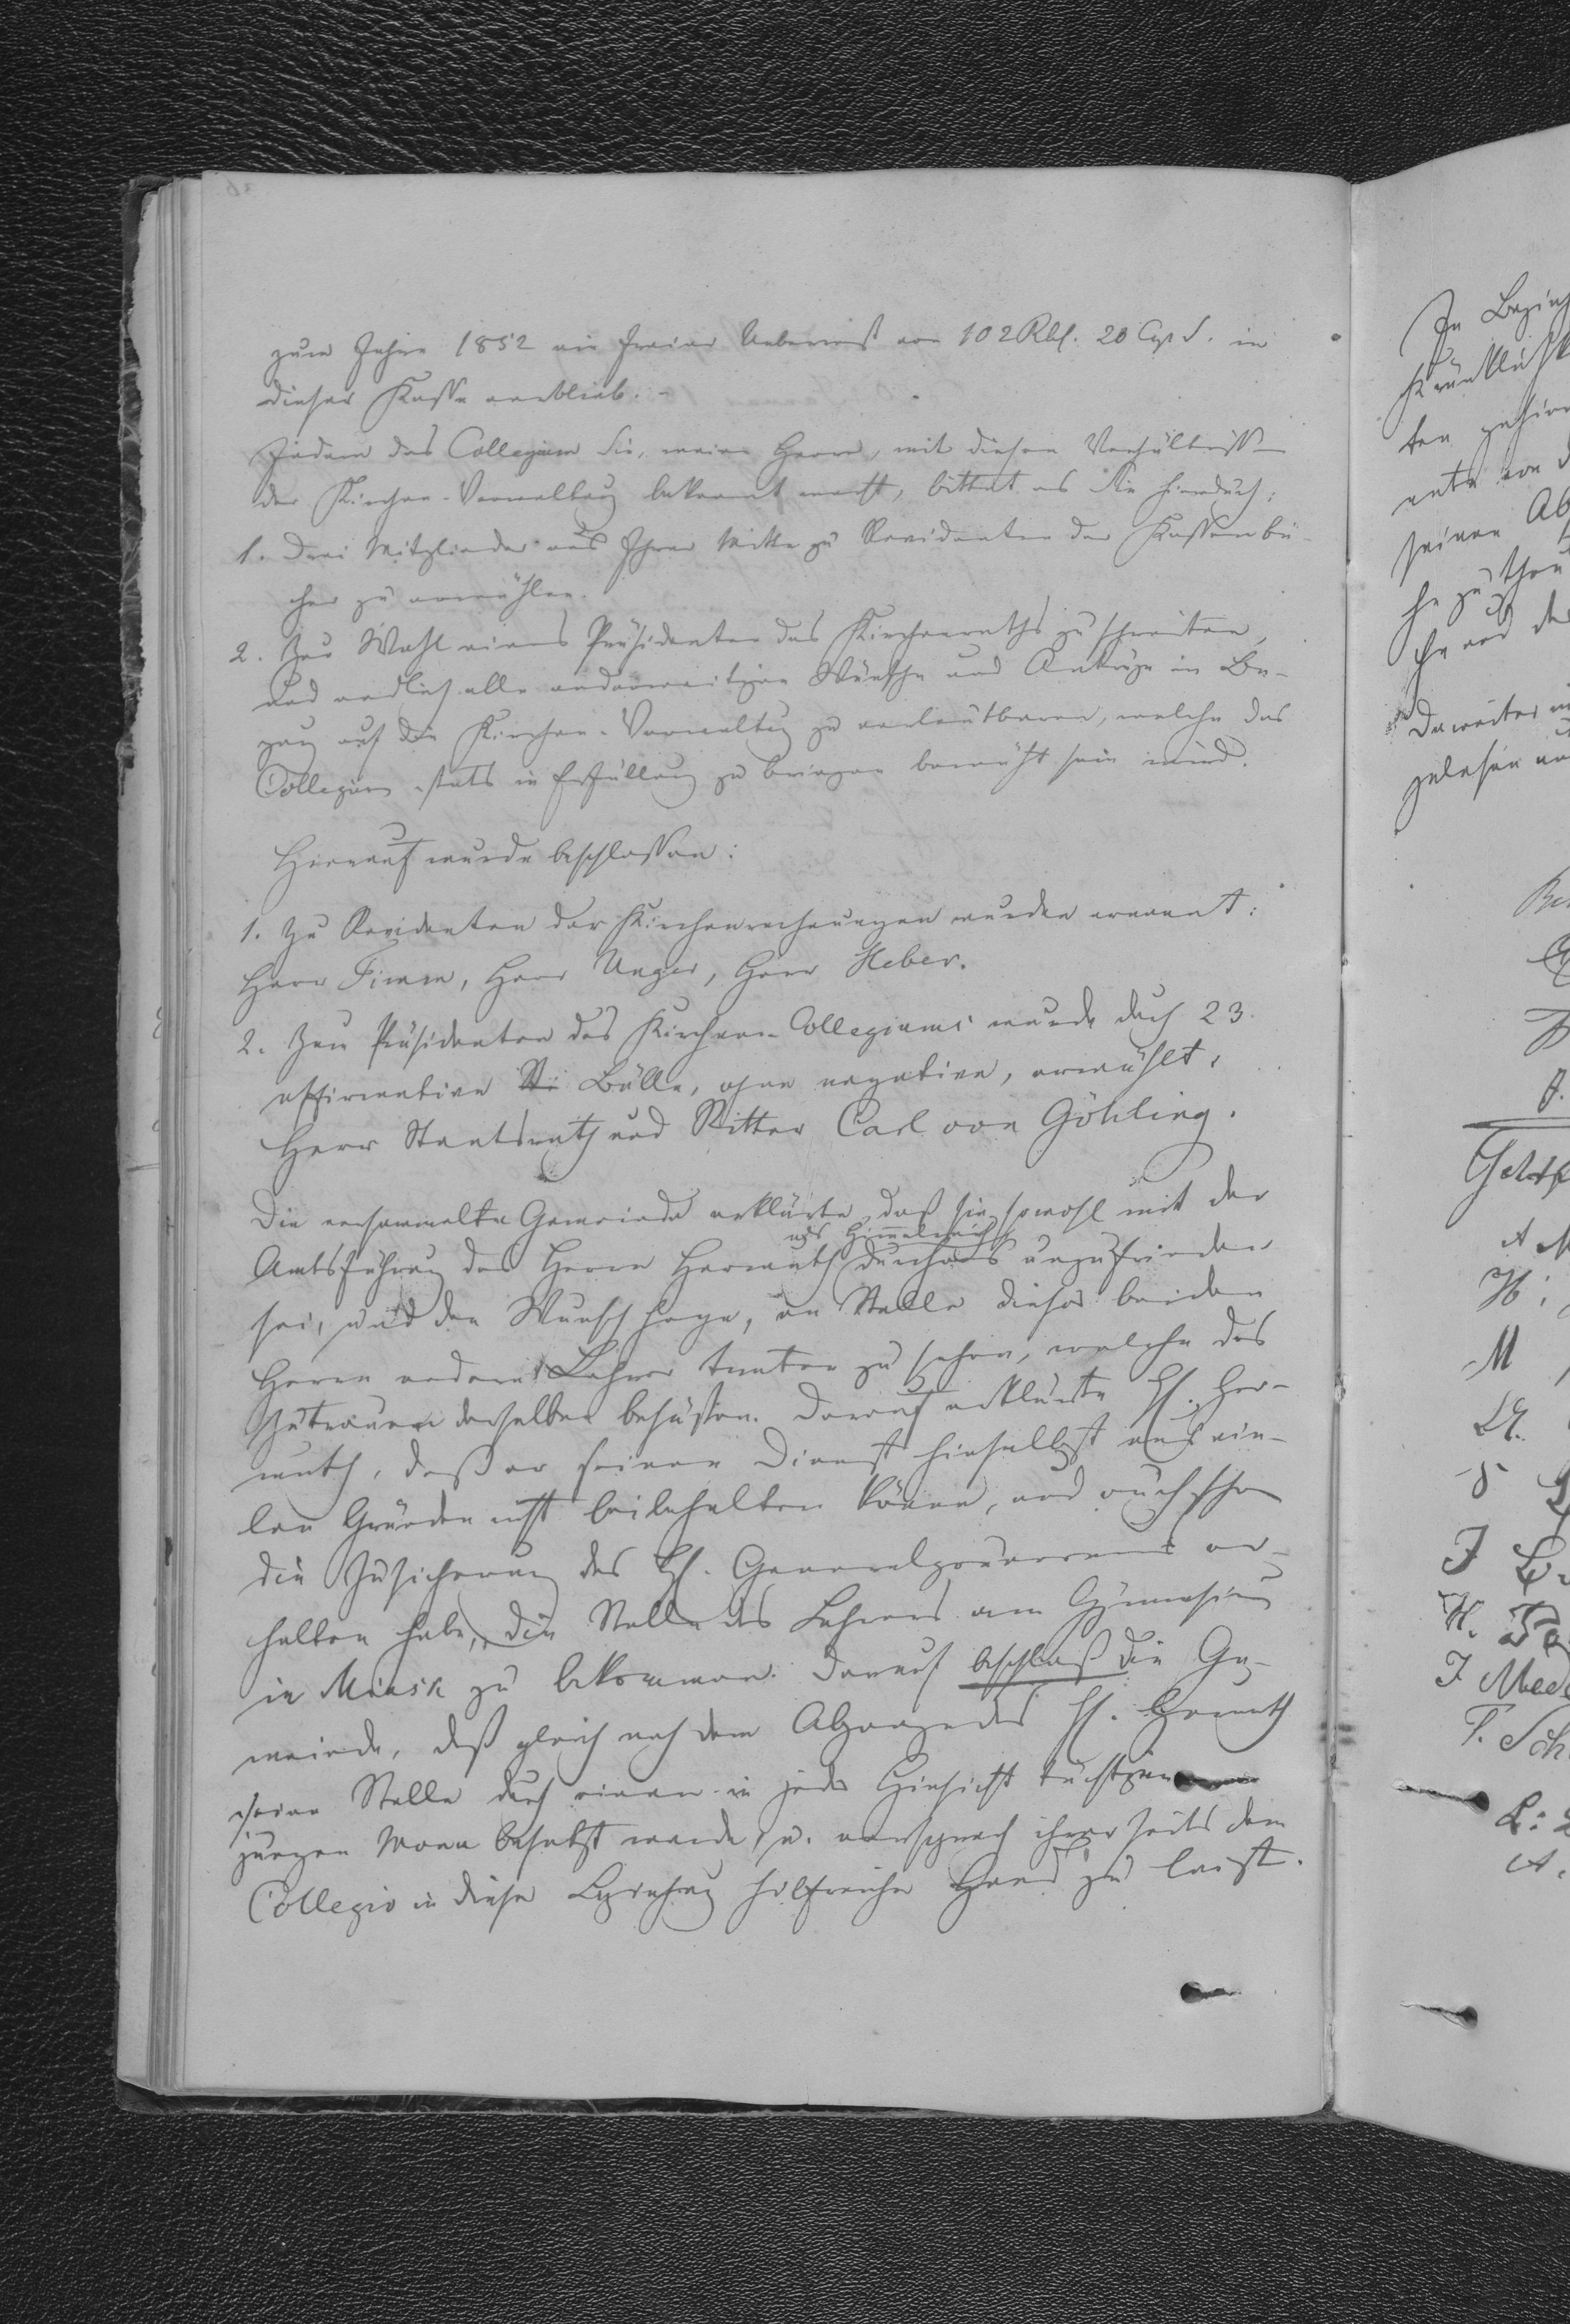 zum Jahre 1852 ein freier Ueberrest von 102 Rbl. 20 Cop S. in
dieser Kasse verblieb. -
Indem das Collegium Sie, meine Herrn, mit diesen Verhältnissen
der Kirchen-Verwaltung bekannt macht, bittet es Sie hierdurch:
1. Drei Mitglieder aus Ihrer Mitte zu Revidenten der Kassenbü-
cher zu erwählen.
2. Zur Wahl eines Präsidenten des Kirchenraths zu schreiten,
und endlich alle anderweitigen Wünsche und Anträge in Be-
zug auf die Kirchen-Verwaltung zu verlautbaren, welche das
Collegium stets in Erfüllung zu bringen bemüht sein wird.
Hierauf wurde beschlossen:
1. Zu Revidenten der Kirchenrechnungen wurden ernannt:
Herr Timm, Herr Unger, Herr Heber.
2. Zum Präsidenten des Kirchen-Collegiums wurde durch 23
affirmative Bälle, ohne negative, erwählt,
Herr Staatsrath und Ritter Carl von Göhling.
Die versammelte Gemeinde erklärte, daß sie sowohl mit der
als Himmelreich
Amtsführung des Herrn Hermuth durchaus unzufrieden
sei, und den Wunsch hege, an Stelle dieser beiden
Herrn andere Lehrer treten zu sehen, welche das
Zutrauen derselben besässen. Darauf erklärte H. Her-
muth, daß er seinen Dienst hieselbst aus vie-
len Gründen nicht beibehalten könne, und auch schon
die Zusicherung des H. Generalgouverneurs er-
halten habe, die Stelle des Lehrers am Gymnasium
in Minsk zu bekommen. Darauf beschloß die Ge-
meinde, daß gleich nach dem Abgange des H. Hermuth
seine Stelle durch einen in jeder Hinsicht tüchtigen
jungen Mann besetzt werde, u. versprach ihrerseits dem
Collegio in dieser Beziehung hilfreiche Hand zu leist.
In Bezieh
ten
seinen
zu thun
Da weiter
gelesen